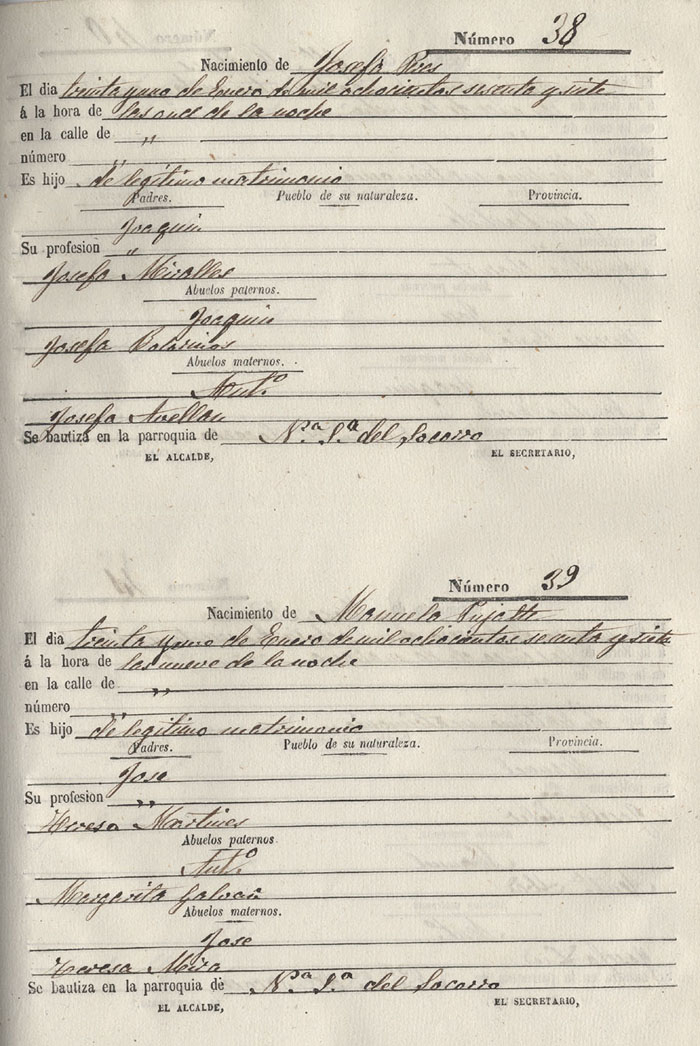 Número 38
Nacimiento de Josefa
El dia treinta y uno de Enero de mil ochocientos sesenta y siete
á la hora de las once de la noche
en la calle de „
número „
Es hijo de legítimo matrimonio
Padres. Pueblo de su naturaleza. Provincia.
Joaquin
Su profesion „
Josefa Miralles
Abuelos paternos.
Joaquin
Josefa
Abuelos maternos.
Antº
Josefa Avellan
Se bautiza en la parroquia de Nª Sª del Socorro
EL ALCALDE, EL SECRETARIO,
Número 39
Nacimiento de Manuela
El dia treinta y uno de Enero de mil ochocientos sesenta y siete
á la hora de las nueve de la noche
en la calle de „
número „
Es hijo de legitimo matrimonio
Padres. Pueblo de su naturaleza. Provincia.
Jose
Su profesion „
Teresa Martines
Abuelos paternos
Antº
Margarita Galvañ
Abuelos maternos.
Jose
Teresa Mira
Se bautiza en la parroquia de Nª Sª del Socorro
EL ALCALDE, EL SECRETARIO,